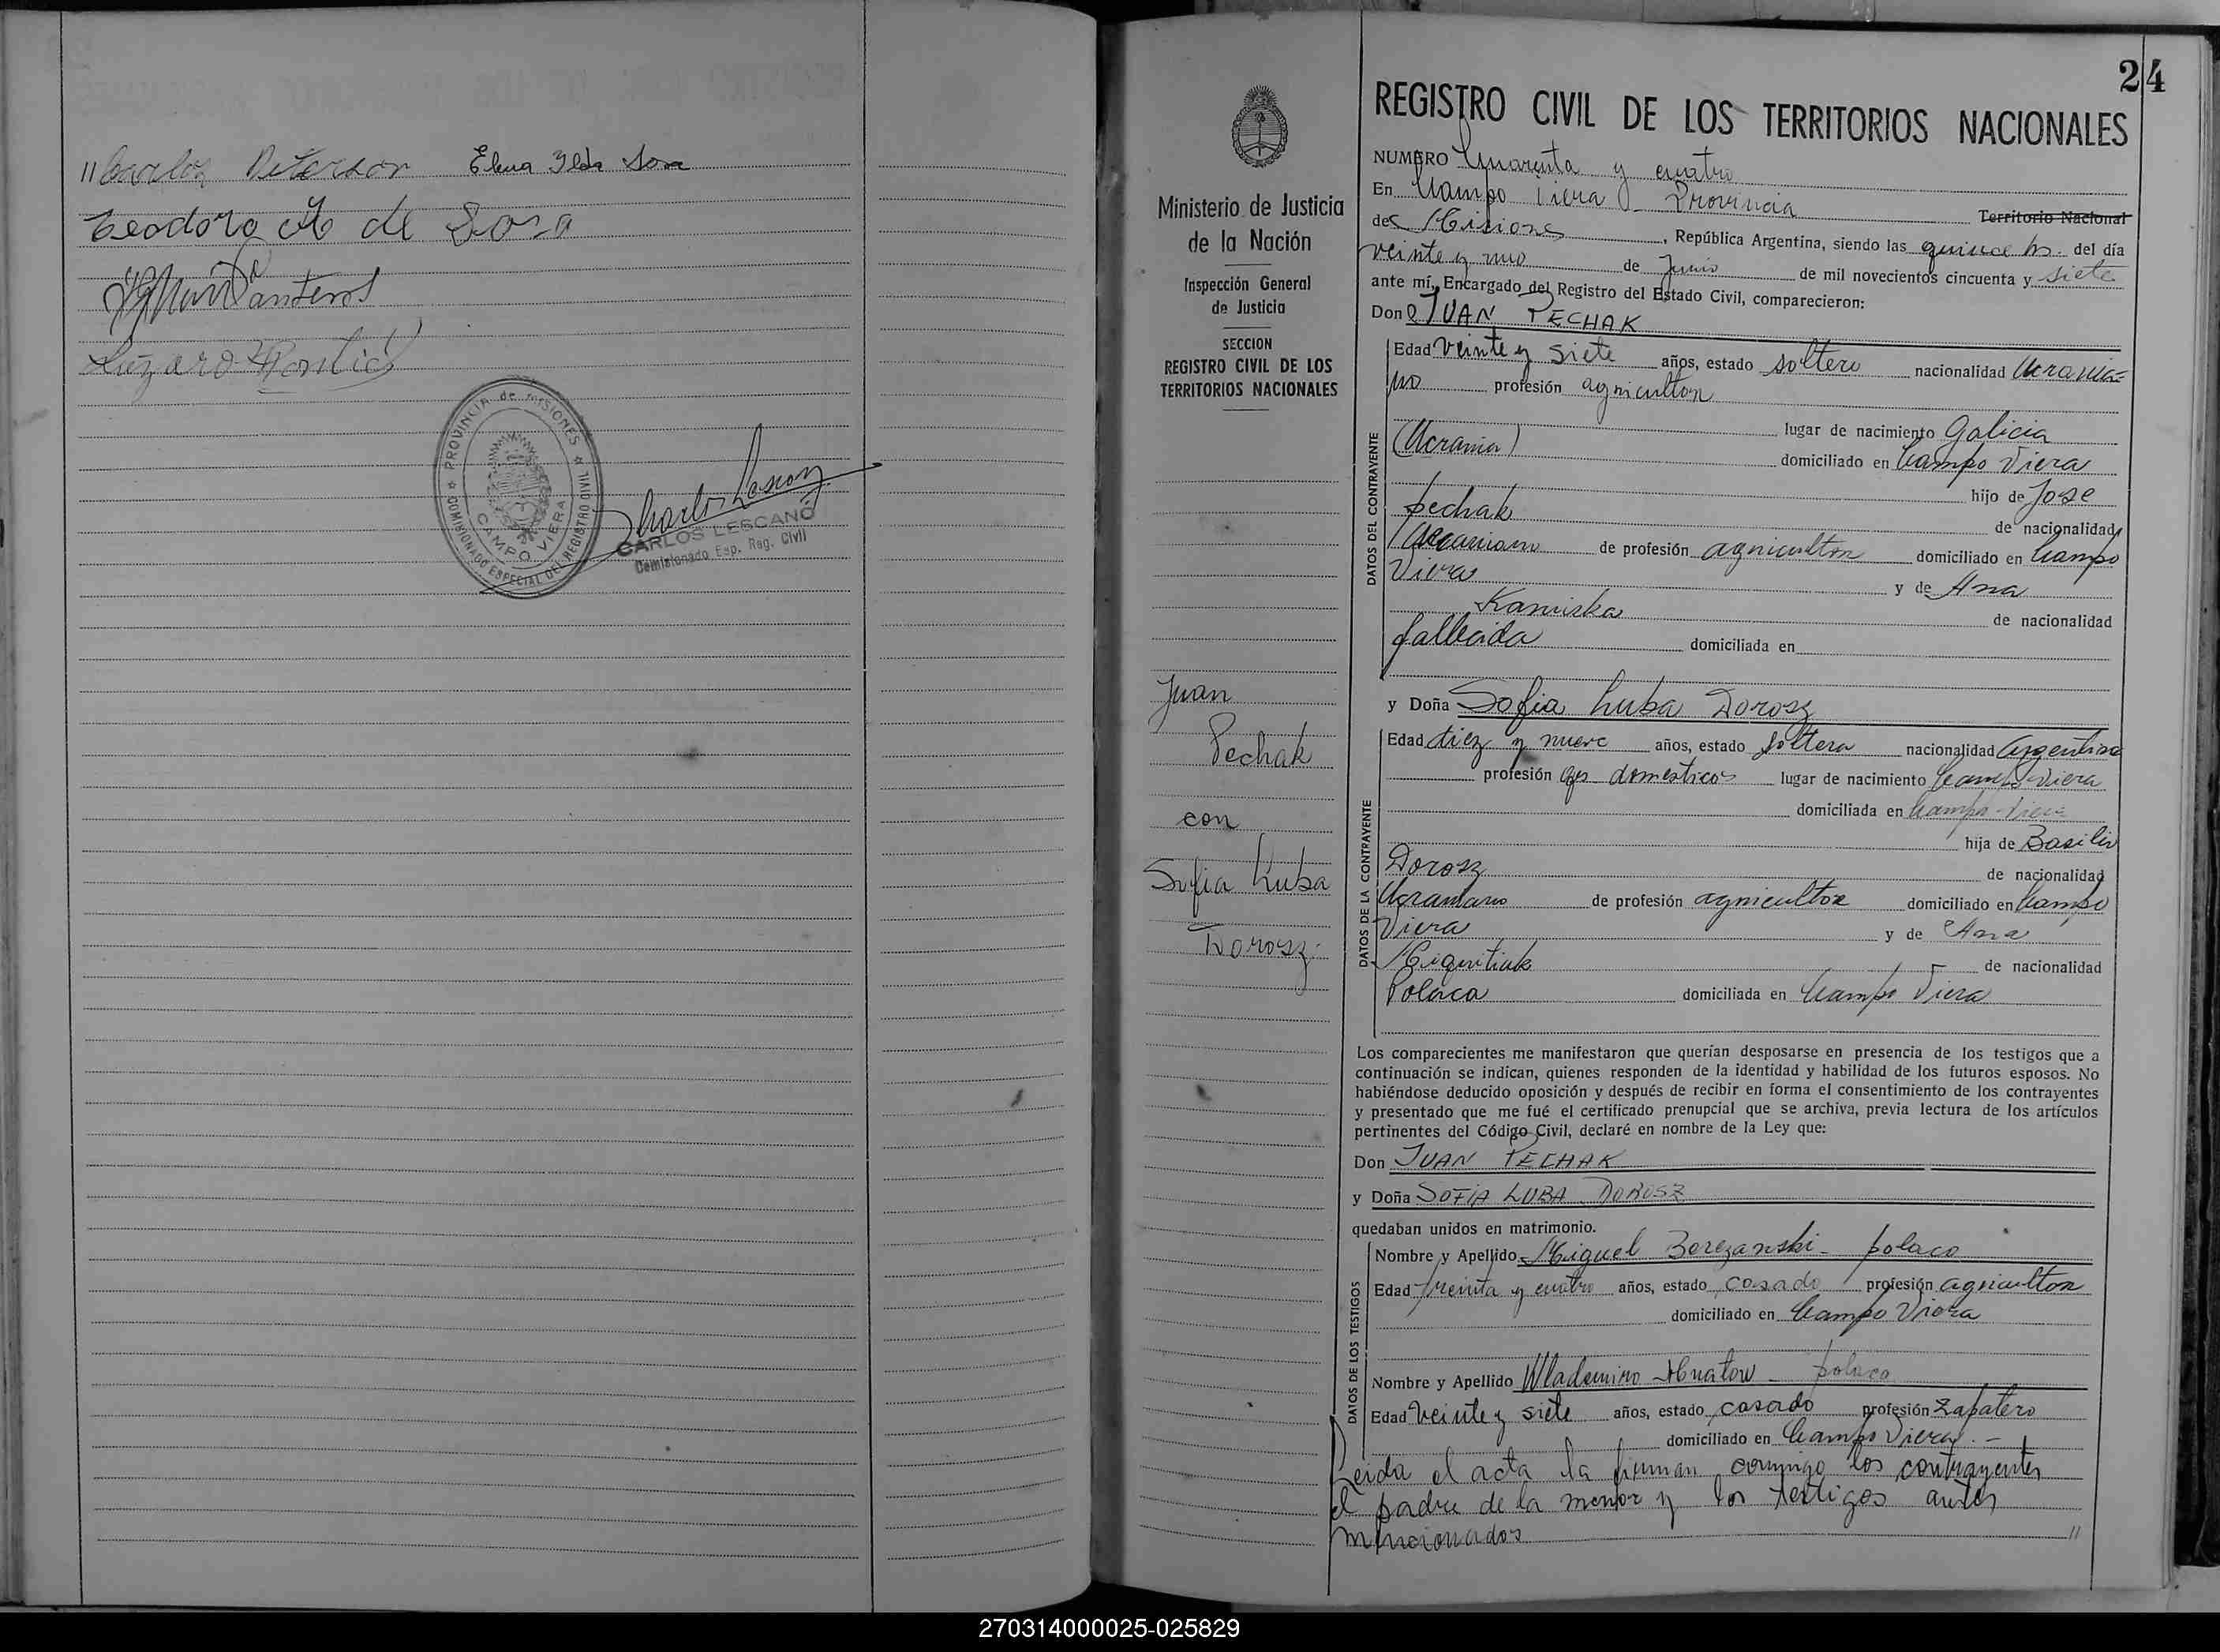 // Carlos Peterson Elena Ilda Sosa
Teodoro A de Sosa
Lázaro
PROVINCIA de MISIONES
COMISIONADO ESPECIAL DEL REGISTRO CIVIL
CAMPO VIERA
Carlos Lescano
CARLOS LESCANO
Comisionado Esp. Reg. Civil
24
Ministerio de Justicia
de la Nación
Inspección General
de Justicia
SECCION
REGISTRO CIVIL DE LOS
TERRITORIOS NACIONALES
Juan
Pechak
con
Sofia Luba
Dorosz.
REGISTRO CIVIL DE LOS TERRITORIOS NACIONALES
NUMERO Cuarenta y cuatro
En Campo Viera - Provincia Territorio Nacional
de Misiones, República Argentina, siendo las quince hs. del día
veinte y uno de Junio de mil novecientos cincuenta y siete
ante mí, Encargado del Registro del Estado Civil, comparecieron:
Don JUAN PECHAK
DATOS DEL CONTRAYENTE
Edad veinte y siete años, estado soltero nacionalidad Ucrania=
no profesión agricultor
lugar de nacimiento Galicia
(Ucrania) domiciliado en Campo Viera
hijo de Jose
Pechak de nacionalidad
Ucraniano de profesión agricultor domiciliado en Campo
Viera y de Ana
Kamiska de nacionalidad
fallecida domiciliada en
y Doña Sofia Luba Dorosz
DATOS DE LA CONTRAYENTE
Edad diez y nueve años, estado soltera nacionalidad Argentina
profesión qs domesticos lugar de nacimiento Campo Viera
domiciliada en Campo Viera
hija de Basilio
Dorosz de nacionalidad
Ucraniano de profesión agricultor domiciliado en Campo
Viera y de Ana
Miquitiuk de nacionalidad
Polaca domiciliada en Campo Viera
Los comparecientes me manifestaron que querían desposarse en presencia de los testigos que a
continuación se indican, quienes responden de la identidad y habilidad de los futuros esposos. No
habiéndose deducido oposición y después de recibir en forma el consentimiento de los contrayentes
y presentado que me fué el certificado prenupcial que se archiva, previa lectura de los artículos
pertinentes del Código Civil, declaré en nombre de la Ley que:
Don JUAN PECHAK
y Doña SOFIA LUBA DOROSZ
quedaban unidos en matrimonio.
DATOS DE LOS TESTIGOS
Nombre y Apellido Miguel Berezanski - polaco
Edad treinta y cuatro años, estado casado profesión agricultor
domiciliado en Campo Viera
Nombre y Apellido Wlademiro Hnatow - polaco
Edad veinte y siete años, estado casado profesión zapatero
domiciliado en Campo Viera. -
Leida el acta la firman conmigo los contrayentes
el padre de la menor y los testigos antes
mencionados //
270314000025-025829